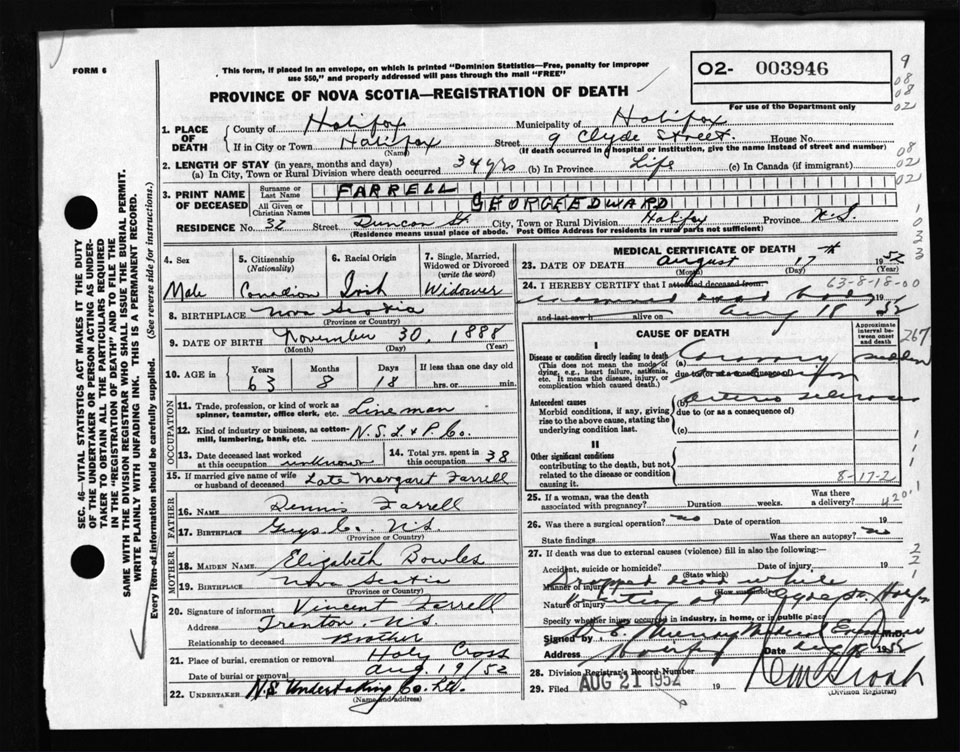 FORM 6
This form, if placed in an envelope, on which is printed "Dominion Statistics—Free, penalty for improper use $50," and properly addressed will pass through the mail "FREE"
PROVINCE OF NOVA SCOTIA—REGISTRATION OF DEATH
O2- 003946
For use of the Department only
9
08
08
02
1. PLACE OF DEATH
County of Halifax Municipality of Halifax
If in City or Town Halifax (Name) Street 9 Clyde Street. House No.
(If death occurred in a hospital or institution, give the name instead of street and number)
2. LENGTH OF STAY (in years, months and days)
(a) In City, Town or Rural Division where death occurred 34 yrs (b) In Province Life (c) In Canada (if immigrant)
3. PRINT NAME OF DECEASED
Surname or Last Name FARRELL
All Given or Christian Names GEORGE EDWARD
RESIDENCE No. 32 Street Duncan St. City, Town or Rural Division Halifax Province N.S.
(Residence means usual place of abode. Post Office Address for residents in rural parts not sufficient)
4. Sex Male
5. Citizenship (Nationality) Canadian
6. Racial Origin Irish
7. Single, Married, Widowed or Divorced (write the word) Widower
8. BIRTHPLACE Nova Scotia
(Province or Country)
9. DATE OF BIRTH November 30, 1888
(Month) (Day) (Year)
10. AGE in Years 63 Months 8 Days 18 If less than one day old hrs. or min.
OCCUPATION
11. Trade, profession, or kind of work as spinner, teamster, office clerk, etc. Lineman
12. Kind of industry or business, as cotton-mill, lumbering, bank, etc. N.S.L. & P. Co.
13. Date deceased last worked at this occupation unknown
14. Total yrs. spent in this occupation 38
15. If married give name of wife or husband of deceased Late Margaret Farrell
FATHER
16. NAME Dennis Farrell
17. BIRTHPLACE Guys Co. N.S.
(Province or Country)
MOTHER
18. MAIDEN NAME Elizabeth Bowles
19. BIRTHPLACE Nova Scotia
(Province or Country)
20. Signature of informant Vincent Farrell
Address Trenton, N.S.
Relationship to deceased Brother
21. Place of burial, cremation or removal Holy Cross
Date of burial or removal Aug 19/52
22. UNDERTAKER N.S. Undertaking Co. Ltd.
(Name and address)
MEDICAL CERTIFICATE OF DEATH
23. DATE OF DEATH August 17th 1952
(Month) (Day) (Year)
24. I HEREBY CERTIFY that I attended deceased from:
63-8-18-00
examined dead body 19
and last saw h alive on Aug 18 1952
CAUSE OF DEATH
Approximate interval between onset and death
267
I
Disease or condition directly leading to death (This does not mean the mode of dying, e.g., heart failure, asthenia, etc. It means the disease, injury, or complication which caused death.)
(a) Coronary sudden
due to (or as a consequence of)
Antecedent causes
Morbid conditions, if any, giving rise to the above cause, stating the underlying condition last.
(b) Arterio Sclerosis
due to (or as a consequence of)
(c)
II
Other significant conditions contributing to the death, but not related to the disease or condition causing it.
8-17-2
25. If a woman, was the death associated with pregnancy? Duration weeks. Was there a delivery?
4201
26. Was there a surgical operation? no Date of operation 19
State findings Was there an autopsy? no
27. If death was due to external causes (violence) fill in also the following:—
Accident, suicide or homicide? (State which) Date of injury 19
Manner of injury Dropped dead while
(How sustained)
Nature of injury
Specify whether injury occurred in industry, in home, or in public place
Signed by M.D.
Address Halifax Date Aug 18 1952
28. Division Registrar's Record Number
29. Filed AUG 21 1952 19
(Division Registrar)
SEC. 46—VITAL STATISTICS ACT MAKES IT THE DUTY OF THE UNDERTAKER OR PERSON ACTING AS UNDERTAKER TO OBTAIN ALL THE PARTICULARS REQUIRED IN THE "REGISTRATION OF DEATH" AND TO FILE THE SAME WITH THE DIVISION REGISTRAR WHO SHALL ISSUE THE BURIAL PERMIT.
WRITE PLAINLY WITH UNFADING INK. THIS IS A PERMANENT RECORD.
Every item of information should be carefully supplied. (See reverse side for instructions.)